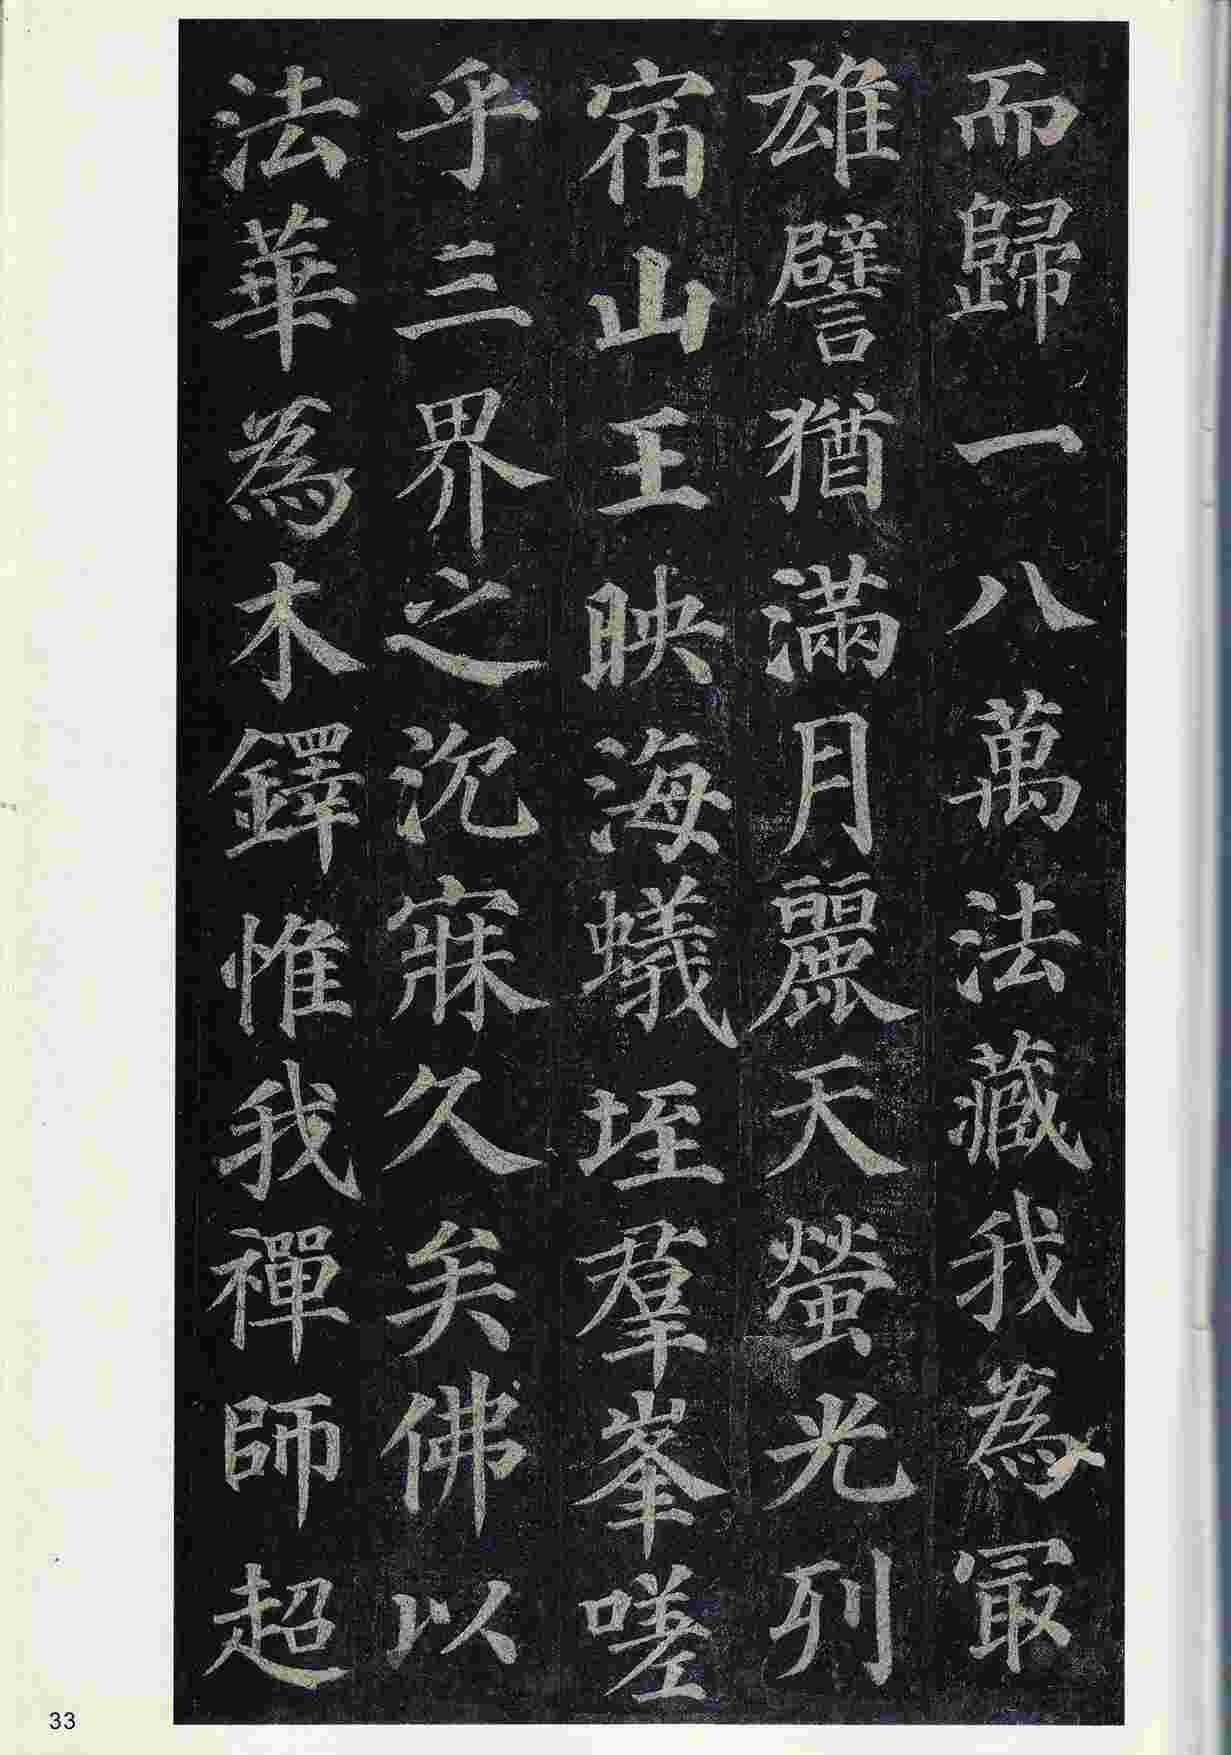 而歸一八萬法藏我為冣
雄譬猶滿月麗天螢光列
宿山王映海蟻垤羣峯嗟
乎三界之沉寐久矣佛以
法華為木鐸惟我禪師超
33